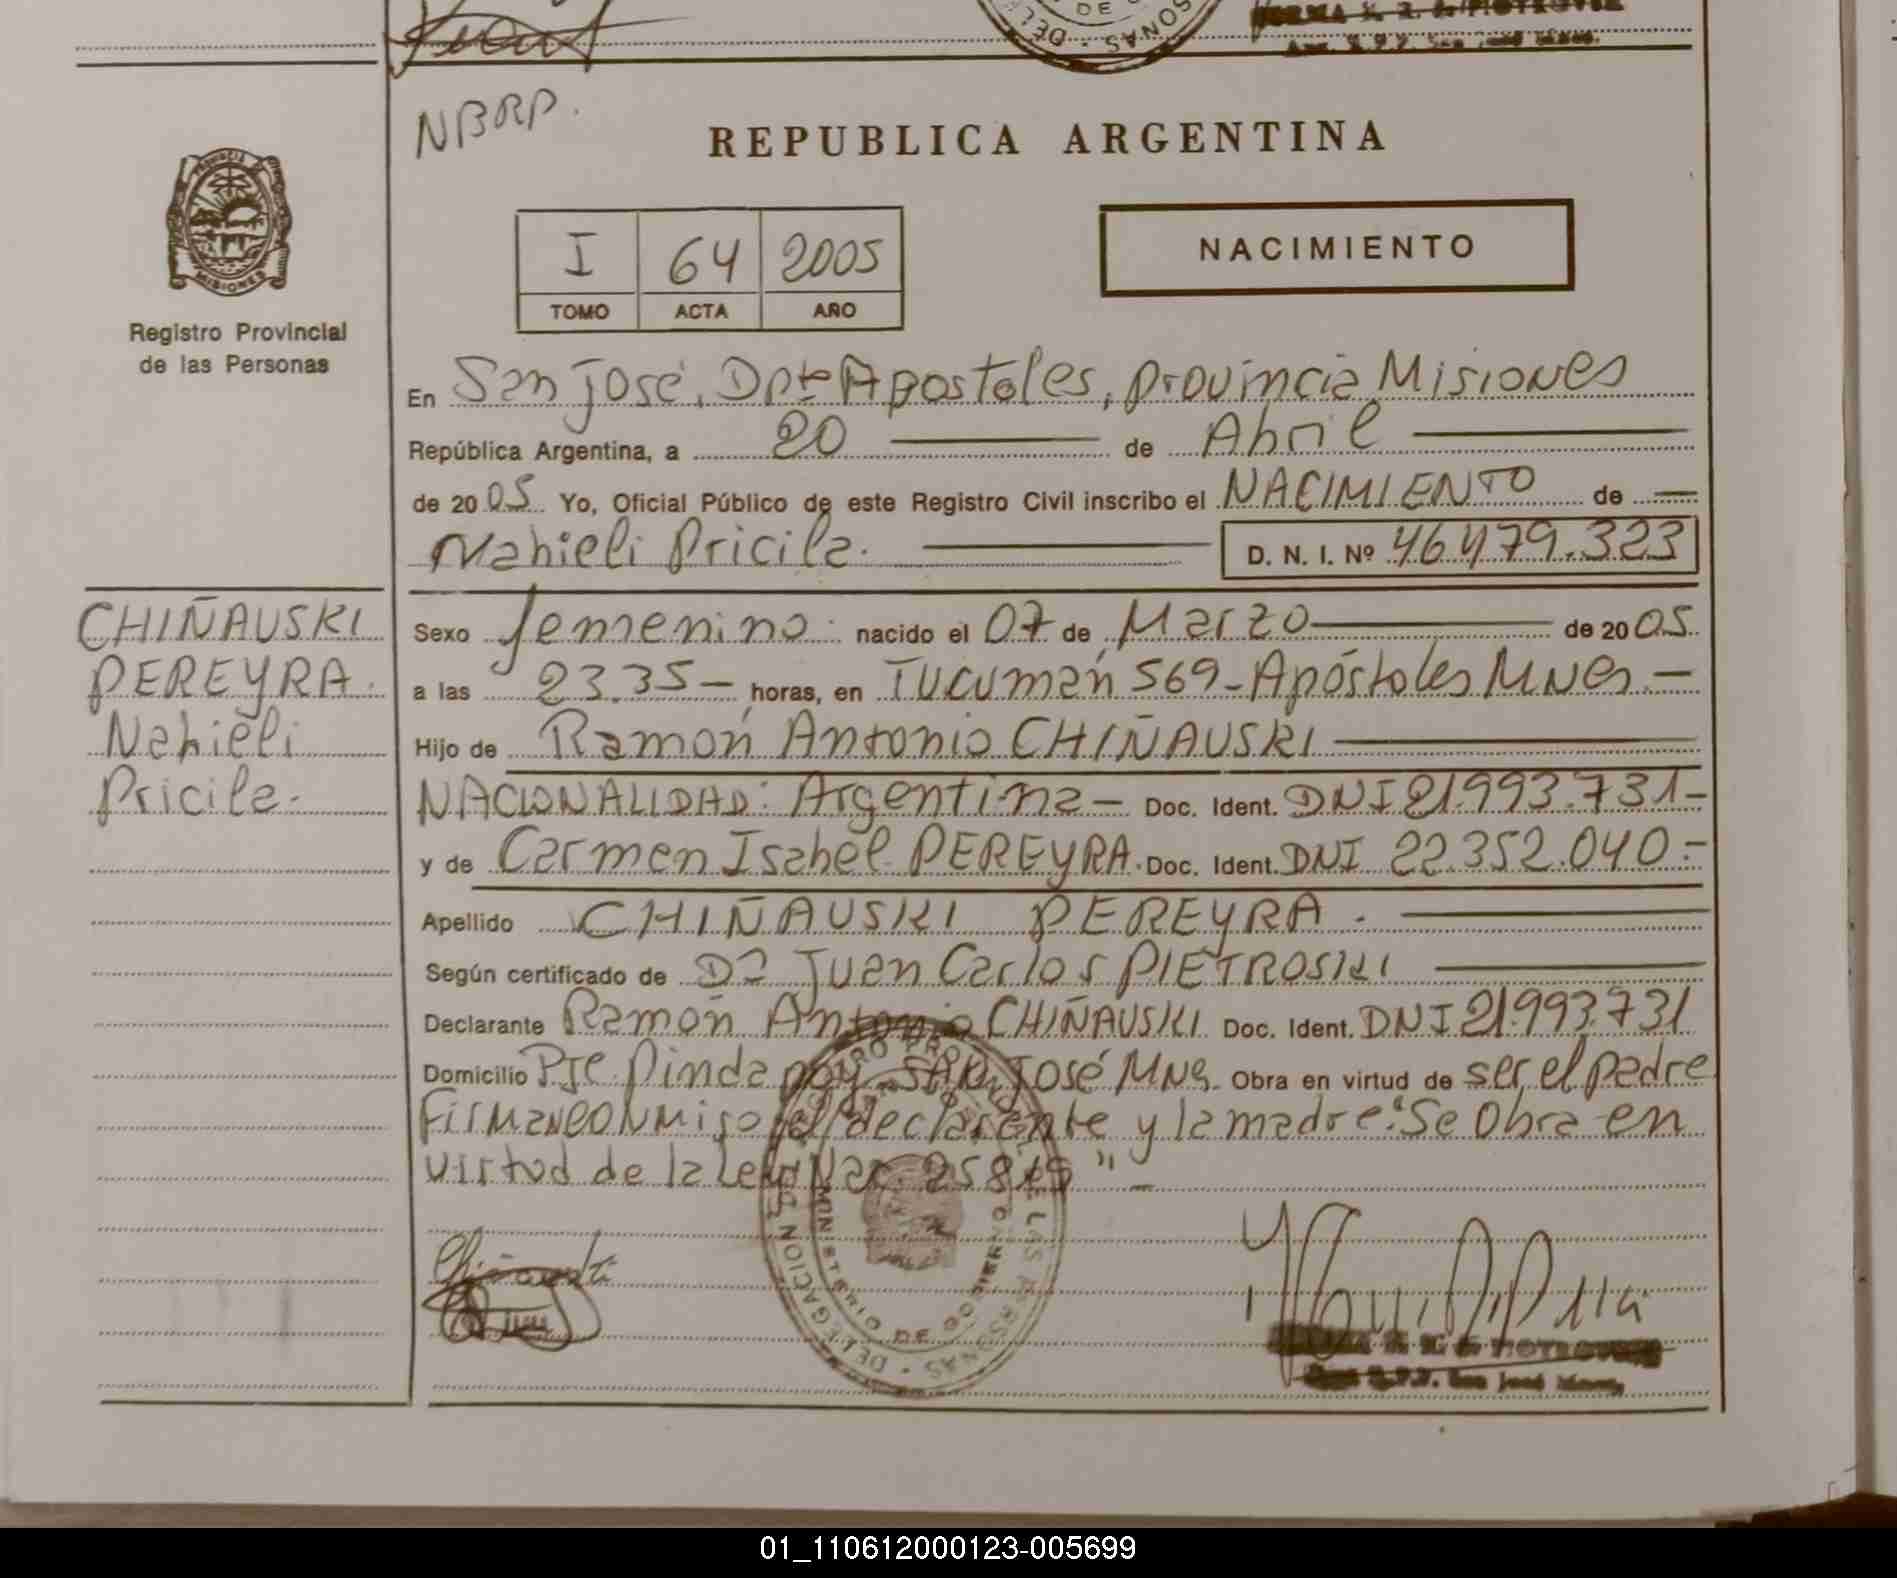 DE
SONAS - DEL
NORMA
San José Mnes.
NBRP.
REPUBLICA ARGENTINA
PROVINCIA DE
MISIONES
Registro Provincial
de las Personas
I 64 2005
TOMO ACTA AÑO
NACIMIENTO
En San José, Dpto Apostoles, provincia Misiones
República Argentina, a 20 de Abril
de 2005 Yo, Oficial Público de este Registro Civil inscribo el NACIMIENTO de
Nahieli Pricila. D. N. I. Nº 46.479.323
CHIÑAUSKI
PEREYRA.
Nahieli
Pricila.
Sexo femenino. nacido el 07 de Marzo de 2005.
a las 23.35 - horas, en Tucumán 569 - Apóstoles Mnes. -
Hijo de Ramón Antonio CHIÑAUSKI
NACIONALIDAD: Argentina - Doc. Ident. DNI 21.993.731 -
y de Carmen Isabel PEREYRA. Doc. Ident. DNI 22.352.040 =
Apellido CHIÑAUSKI PEREYRA.
Según certificado de Dr Juan Carlos PIETROSKI
Declarante Ramón Antonio CHIÑAUSKI Doc. Ident. DNI 21.993.731
Domicilio Pje Pindapoy - SAN José Mnes. Obra en virtud de ser el padre
Firman conmigo el declarante y la madre. "Se Obra en
virtud de la Ley Nac. 258" -
REGISTRO PROVINCIAL DE LAS PERSONAS - DELEGACION
MINISTERIO DE GOBIERNO
San José
01_110612000123-005699